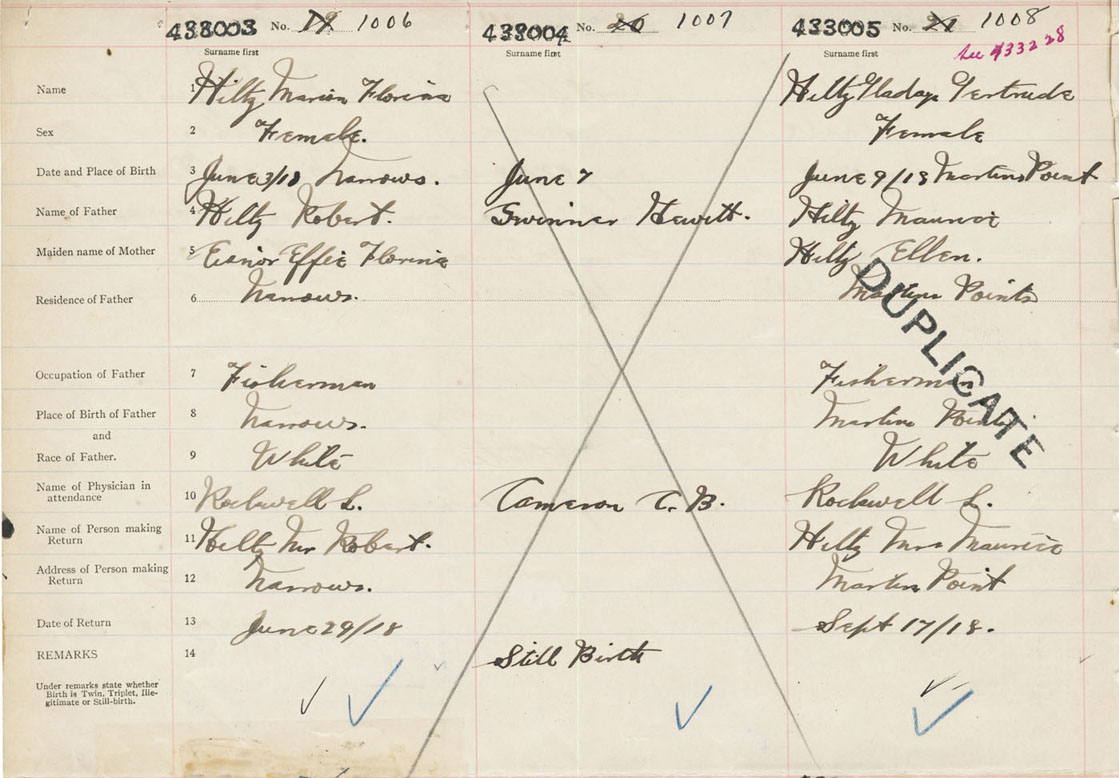 433003 No. 19 1006 433004 No. 20 1007 433005 No. 21 1008
See 433228
Surname first Surname first Surname first
Name 1 Hiltz Marion Florina Hiltz Gladys Gertrude
Sex 2 Female. Female
Date and Place of Birth 3 June 3/18 Narrows. June 7 June 9/18 Martins Point
Name of Father 4 Hiltz Robert. Swinner Hewitt. Hiltz Maurice
Maiden name of Mother 5 Eisnor Effie Florina Hiltz Ellen.
Residence of Father 6 Narrows. Martins Points
DUPLICATE
Occupation of Father 7 Fisherman Fisherman
Place of Birth of Father 8 Narrows. Martins Point
and
Race of Father. 9 White White
Name of Physician in
attendance 10 Rockwell L. Cameron C. B. Rockwell L.
Name of Person making
Return 11 Hiltz Mr Robert. Hiltz Mrs Maurice
Address of Person making
Return 12 Narrows. Martin Point
Date of Return 13 June 29/18 Sept 17/18.
REMARKS 14 Still Birth
Under remarks state whether
Birth is Twin, Triplet, Ille-
gitimate or Still-birth.